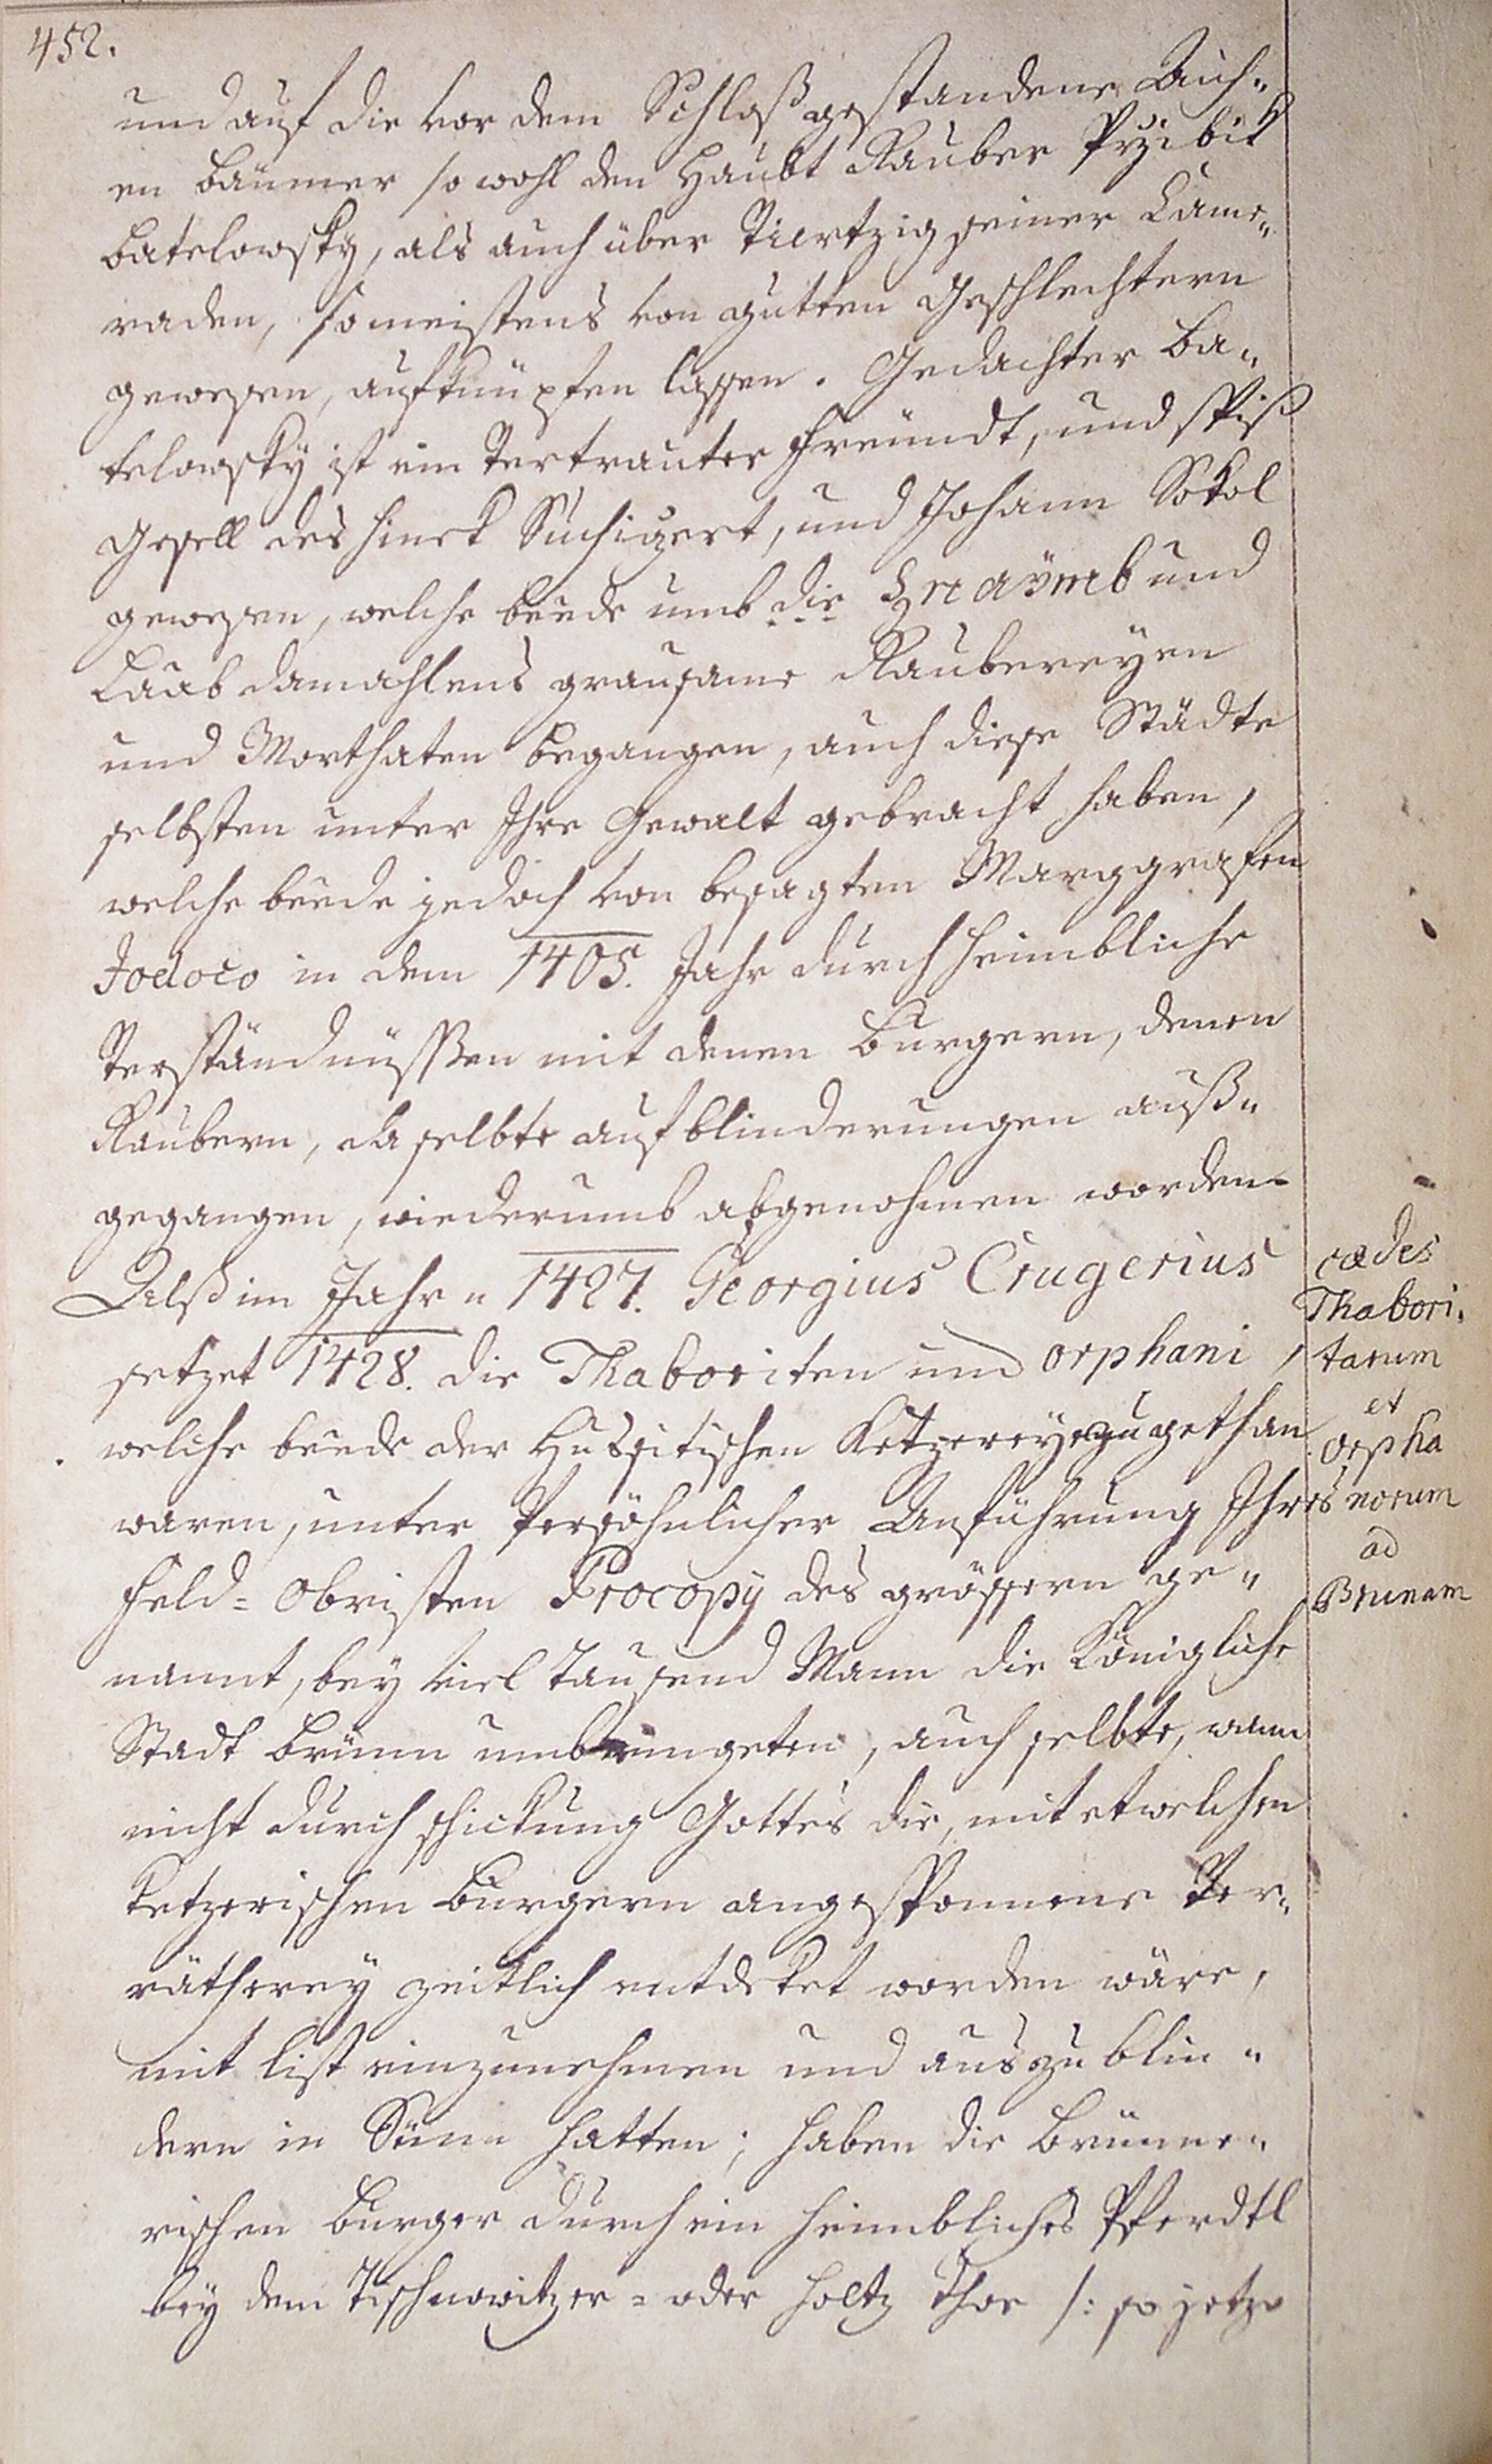 452.
und auf die vor dem Schloß gestandene Aich„
en bäumer so wohl den Haubt Rauber Przibik
Batelowsky, als auch über Viertzig seiner Came„
raden, so meistens von gutten Geschlechtern
gewesen, aufknüpfen lassen. Gedachter Ba„
telowsky ist ein Vertrauter Freündt, und spiß
gesell des Hinek Suchigert, und Johann Sokol
gewesen, welche beede umb die Znaÿmb und
Laab damahlens grausame Raubereÿen
und Mordthaten begangen, auch diese Städte
selbsten unter Ihre Gewalt gebracht haben,
welche beede jedoch von besagten Marggrafen
Jodoco in dem 1405. Jahr durch heimbliche
Verständnüssen mit denen Burgern, denen
Raubern, da selbte auf blinderungen auß„
gegangen, wiederumb abgenohmen worden.
Alß im Jahr„ 1427. Georgius Crugerius
setzet 1428. die Thaboriten und orphani,
welche beede der Hussitischen Ketzereÿ zugethan
waren, unter Persöhnlicher Anführung Ihres
Feld= Obristen Procopÿ des grössern ge„
nannt, beÿ viel Tausend Mann die Königliche
Stadt Brünn umbringeten, auch selbte, wann
nicht durch schickung Gottes die, mit etwelchen
Ketzerischen Burgern angesponnene Ver„
rätherey zeitlich entdeket worden wäre,
mit list einzunehmen und auszublin„
dern in Sünn hatten; haben die Brünne„
rischen Burger durch ein heimbliches Pferdtl
beÿ dem Tischnowitzer= oder Holtz Thor /: so jetzo
cædes
Thabori„
tarum
et
orpha
norum
ad
Brunam